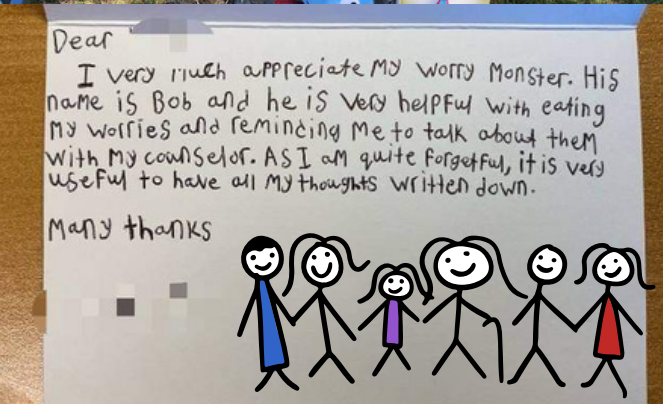 Dear
I very much appreciate my worry Monster. His
name is Bob and he is very helpful with eating
my worries and reminding me to talk about them
with my counselor. As I am quite forgetful, it is very
useful to have all my thoughts written down.
Many thanks